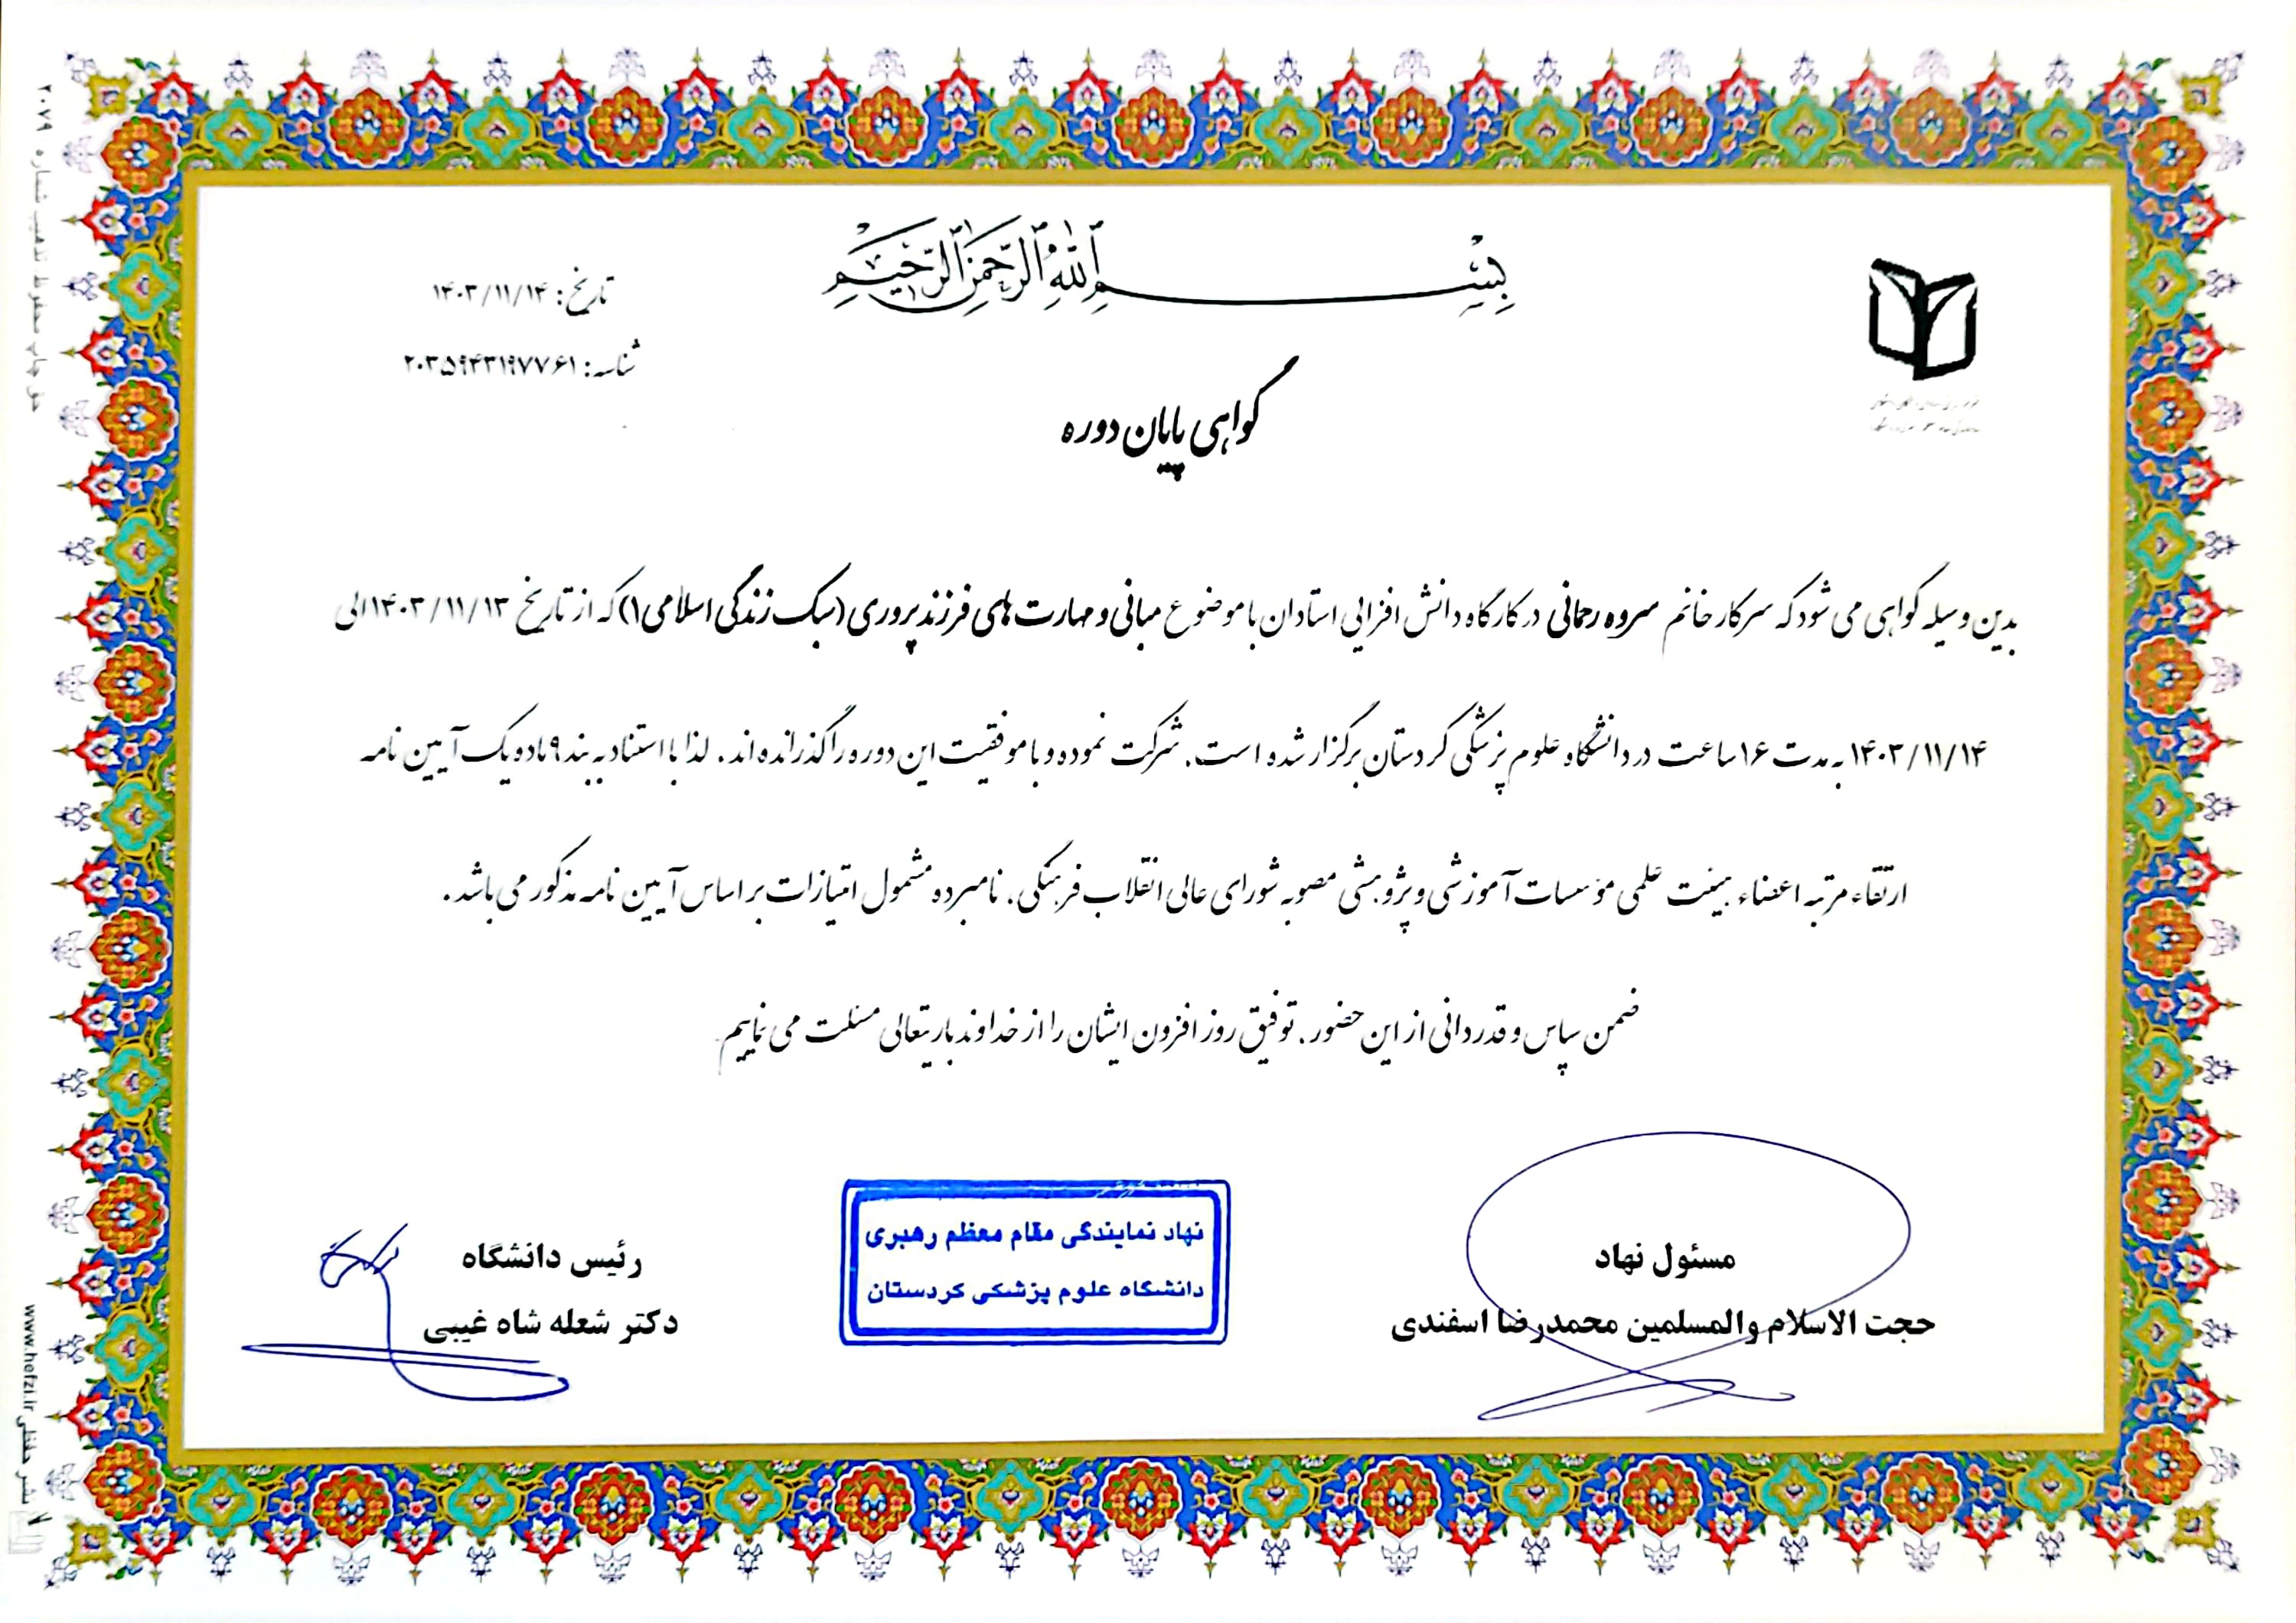 بِسْمِ ٱللَّهِ ٱلرَّحْمَٰنِ ٱلرَّحِيمِ
تاریخ: ۱۴۰۳/۱۱/۱۴
شناسه: ۲۰۳۵۹۴۳۱۹۷۷۶۱
گواهی پایان دوره
بدین وسیله گواهی می شود که سرکار خانم سروه رحمانی در کارگاه دانش افزایی استادان با موضوع مبانی و مهارت های فرزند پروری (سبک زندگی اسلامی۱) که از تاریخ ۱۴۰۳/۱۱/۱۳ الی
۱۴۰۳/۱۱/۱۴ به مدت ۱۶ ساعت در دانشگاه علوم پزشکی کردستان برگزار شده است، شرکت نموده و با موفقیت این دوره را گذرانده اند. لذا با استناد به بند ۹ ماده یک آیین نامه
ارتقاء مرتبه اعضاء هیئت علمی مؤسسات آموزشی و پژوهشی مصوبه شورای عالی انقلاب فرهنگی، نامبرده مشمول امتیازات بر اساس آیین نامه مذکور می باشد.
ضمن سپاس و قدردانی از این حضور، توفیق روز افزون ایشان را از خداوند باریتعالی مسئلت می نماییم
مسئول نهاد
حجت الاسلام والمسلمین محمدرضا اسفندی
نهاد نمایندگی مقام معظم رهبری
دانشگاه علوم پزشکی کردستان
رئیس دانشگاه
دکتر شعله شاه غیبی
حق چاپ محفوظ تذهیب شماره ۲۰۷۹
نشر حفظی www.hefzi.ir